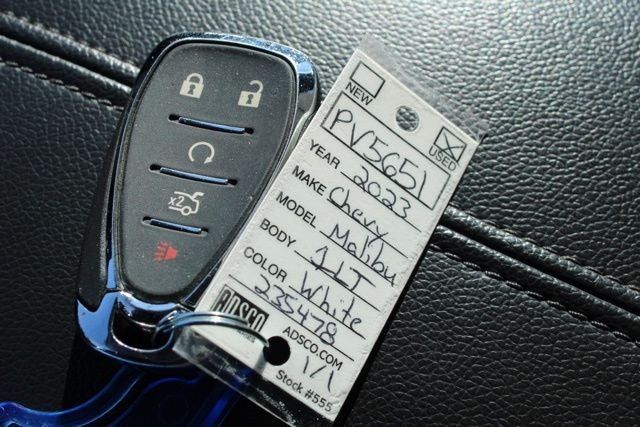 NEW
USED
PV5651
YEAR 2023
MAKE Chevy
MODEL Malibu
BODY 1LT
COLOR White
235478
ADSCO ADSCO.COM
1/1
Stock #555
x2